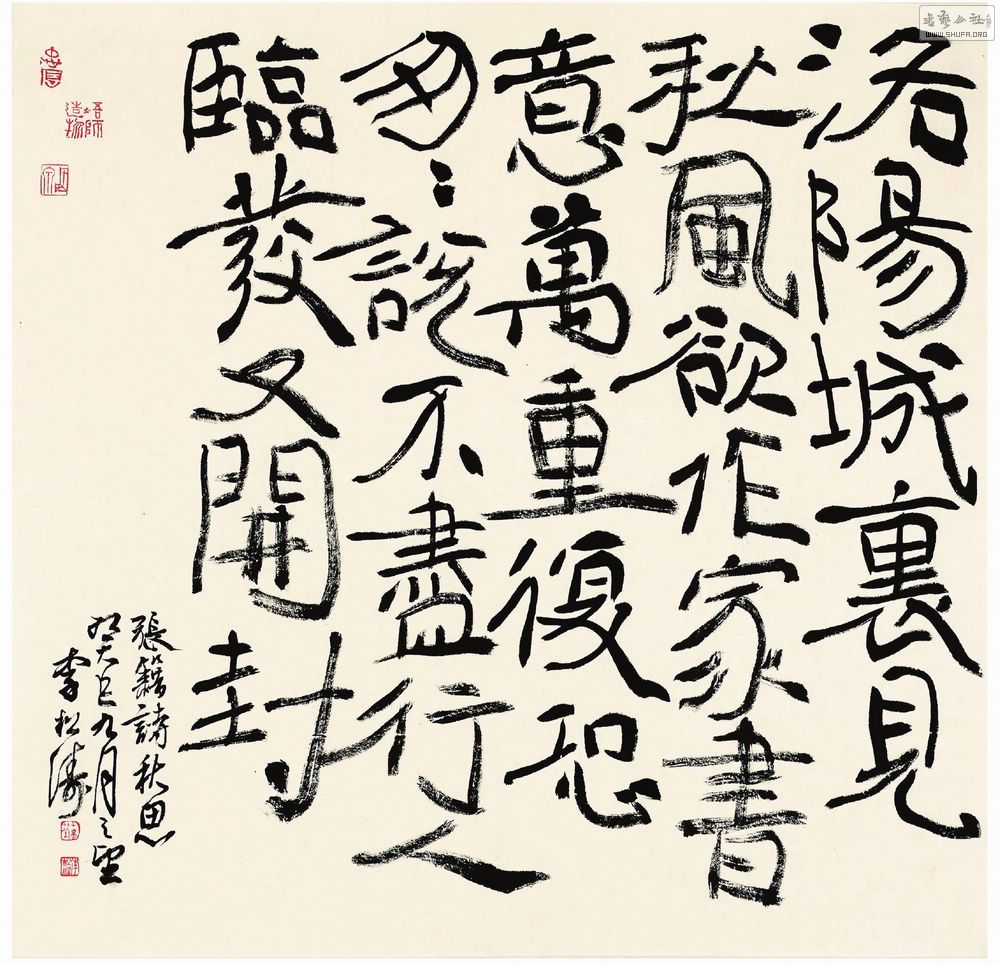 洛陽城裏見
秋風欲作家書
意萬重復恐
匆〻說不盡行人
臨發又開封
張籍詩秋思
癸巳九月之望
李松濤
書藝公社
WWW.SHUFA.ORG